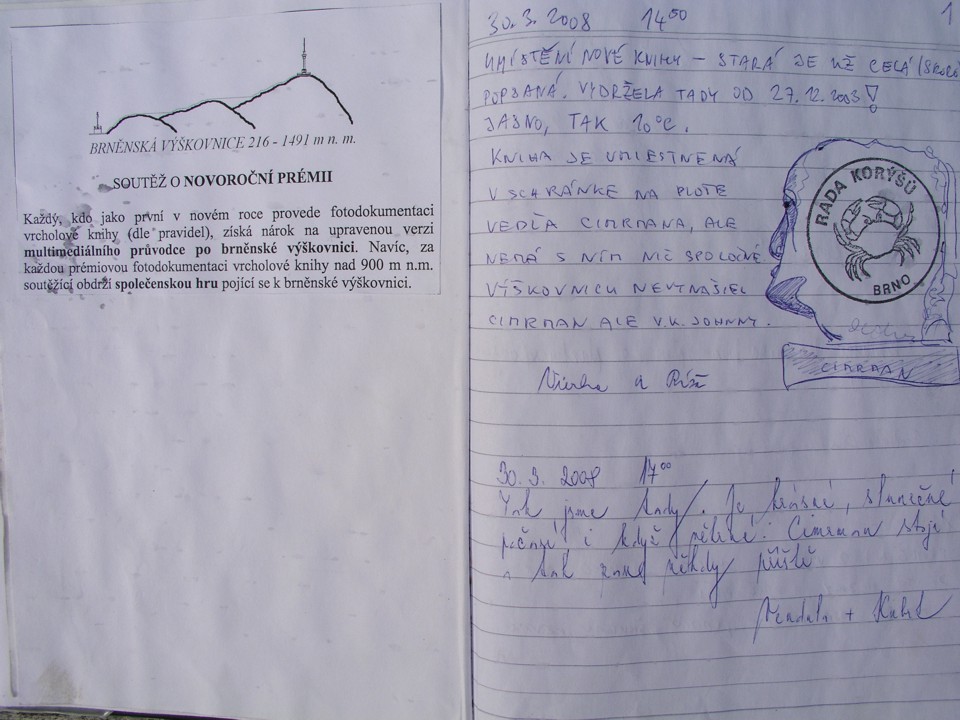 BRNĚNSKÁ VÝŠKOVNICE 216 - 1491 m n. m.
SOUTĚŽ O NOVOROČNÍ PRÉMII
Každý, kdo jako první v novém roce provede fotodokumentaci
vrcholové knihy (dle pravidel), získá nárok na upravenou verzi
multimediálního průvodce po brněnské výškovnici. Navíc, za
každou prémiovou fotodokumentaci vrcholové knihy nad 900 m n.m.
soutěžící obdrží společenskou hru pojící se k brněnské výškovnici.
30.3.2008 14⁵⁰ 1
UMÍSTĚNÍ NOVÉ KNIHY – STARÁ JE UŽ CELÁ (SKORO
POPSANÁ. VYDRŽELA TADY OD 27.12.2003!
JASNO, TAK 10°C.
KNIHA JE UMIESTNENÁ
V SCHRÁNKE NA PLOTE
VEDĽA CIMRMANA, ALE
NEMÁ S NÍM NIČ SPOLOČNÉ.
VÝŠKOVNICU NEVYNAŠIEL
CIMRMAN ALE V.K. JOHNNY.
RADA KORÝŠŮ
BRNO
CIMRMAN
a
30. 3. 2008 17⁰⁰
jsme tady. Je krásné, slunečné
počasí i když. Cimrman stojí
a tak zase někdy příště
+